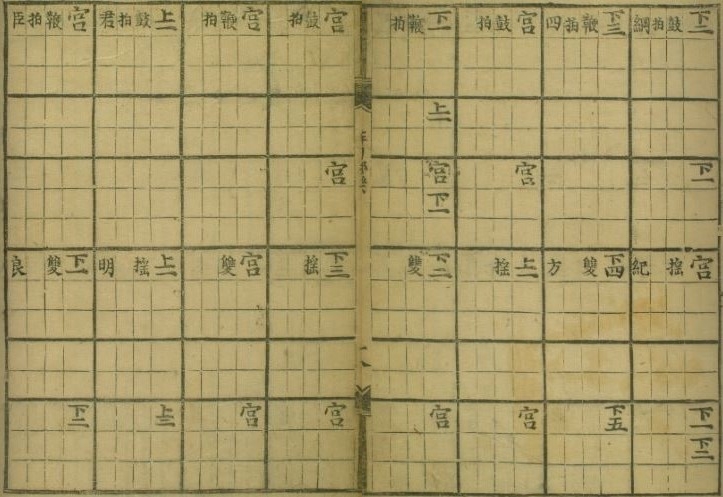 下二 下一 宮 下一 下二
鼓 搖
拍
綱 紀
下三 下四 下五
鞭 雙
拍
四 方
宮 宮 上一 宮
鼓 搖
拍
下一 上一 宮 下一 下二 宮
鞭 雙
拍
宮 宮 下三 宮
鼓 搖
拍
宮 宮 宮
鞭 雙
拍
上一 上一 上三
鼓 搖
拍
君 明
宮 下一 下二
鞭 雙
拍
臣 良